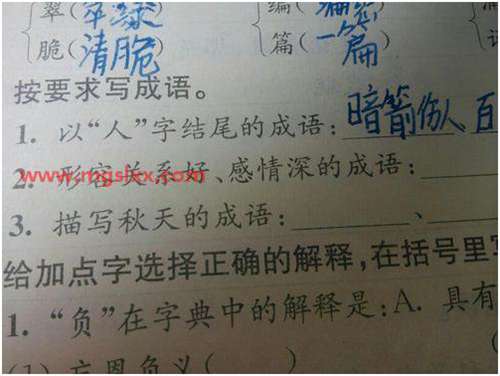 翠(翠绿) 编(
脆(清脆) 篇(一篇)
按要求写成语。
1. 以“人”字结尾的成语:暗箭伤人 百
2. 形容关系好、感情深的成语:
www.mgslxx.com
3. 描写秋天的成语: 、
给加点字选择正确的解释,在括号里写
1. “负”在字典中的解释是:A. 具有
(1) 忘恩负义( )